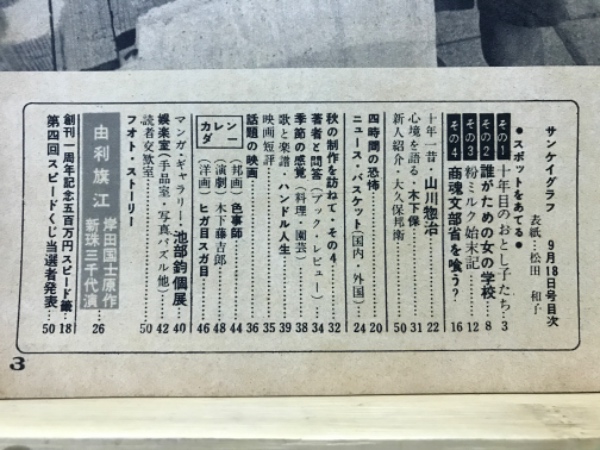 サンケイグラフ 9月18日号目次
表紙…松田 和子
●スポットをあてる●
その1 十年目のおとし子たち…3
その2 誰がための女の学校…8
その3 粉ミルク始末記…12
その4 商魂文部省を喰う?…16
十年一昔・山川惣治…22
心境を語る・木下保…31
新人紹介・大久保邦衛…50
四時間の恐怖…20
ニュース・バスケット(国内・外国)…24
秋の制作を訪ねて・その4…32
著者と問答(ブック・レビュー)…34
季節の感覚(料理・園芸)…38
歌と楽譜・ハンドル人生…39
映画短評…35
話題の映画…36
カレンダー
(邦画)色事師…44
(演劇)木下藤吉郎…48
(洋画)ヒガ目スガ目…46
マンガ・ギャラリー・池部鈞個展…40
娯楽室(手品室・写真パズル他)…42
読者交歓室…50
フオト・ストーリー
由利旗江 岸田国士原作 新珠三千代演…26
創刊一周年記念五百万円スピード籤…18
第四回スピードくじ当選者発表…50
3